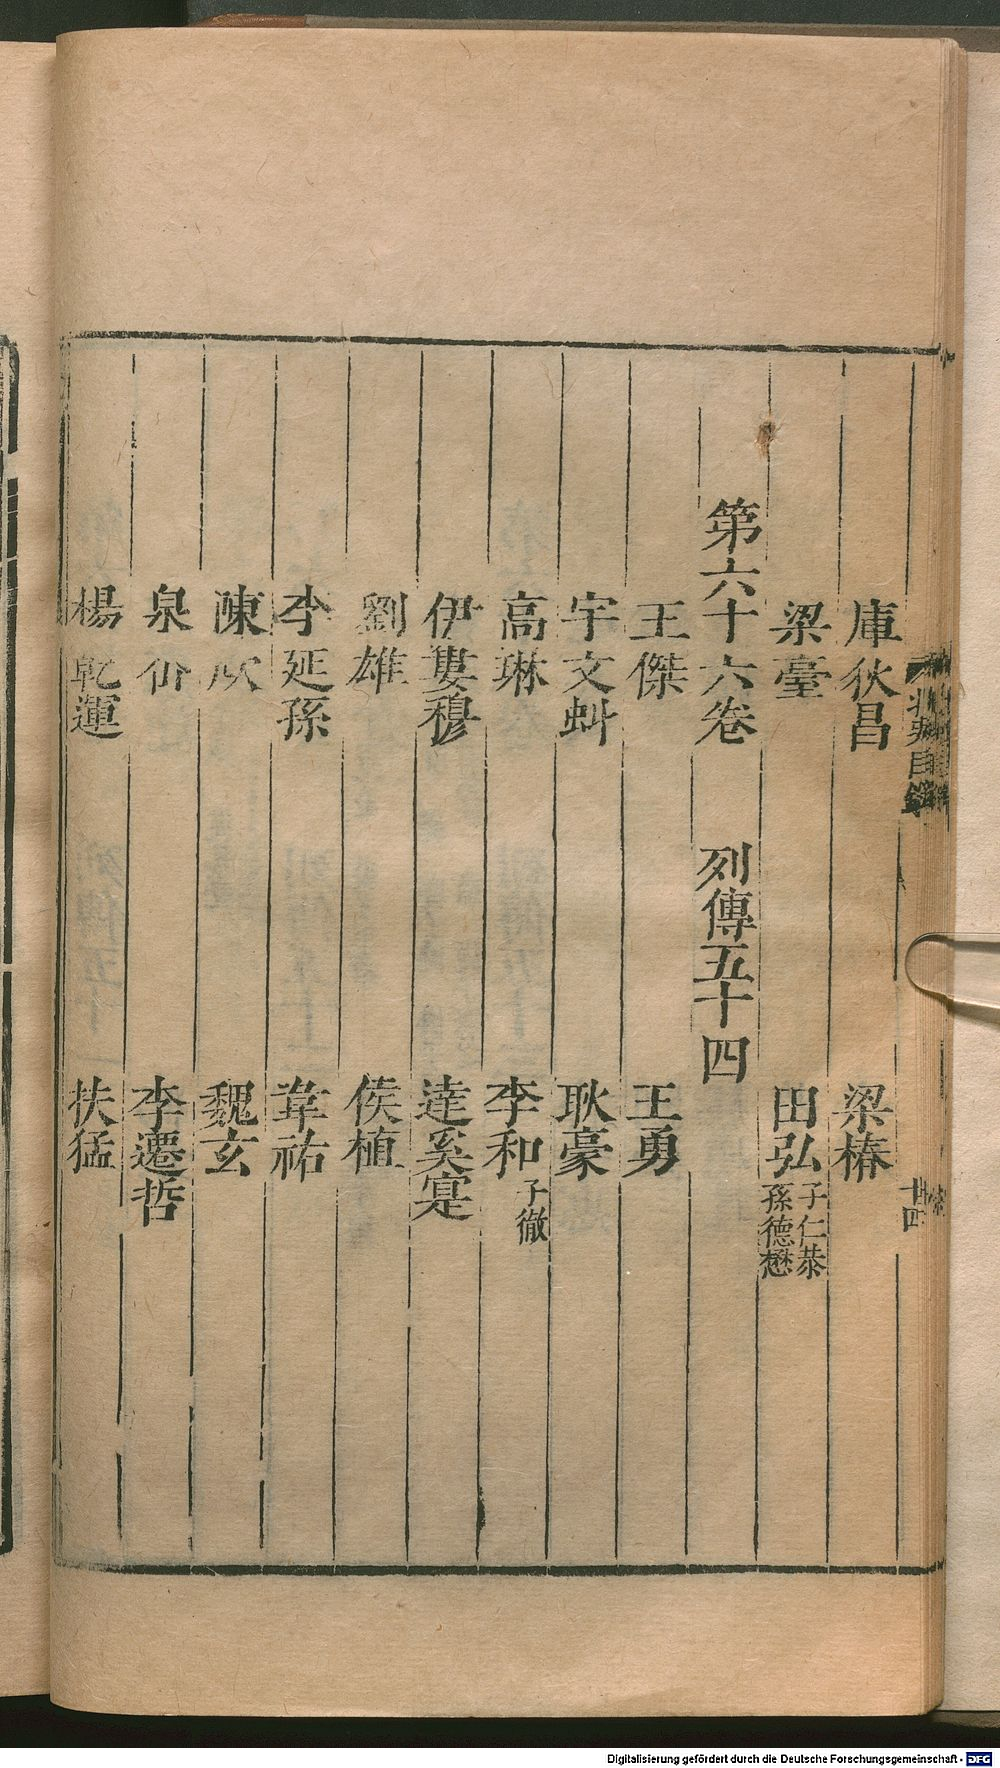 庫狄昌 梁椿
梁臺 田弘 子仁恭 孫德懋
第六十六卷 列傳五十四
王傑 王勇
宇文虯 耿豪
高琳 李和 子徹
伊婁穆 達奚寔
劉雄 侯植
李延孫 韋祐
陳欣 魏玄
泉仚 李遷哲
楊乾運 扶猛
北史目錄
廿四
Digitalisierung gefördert durch die Deutsche Forschungsgemeinschaft - DFG